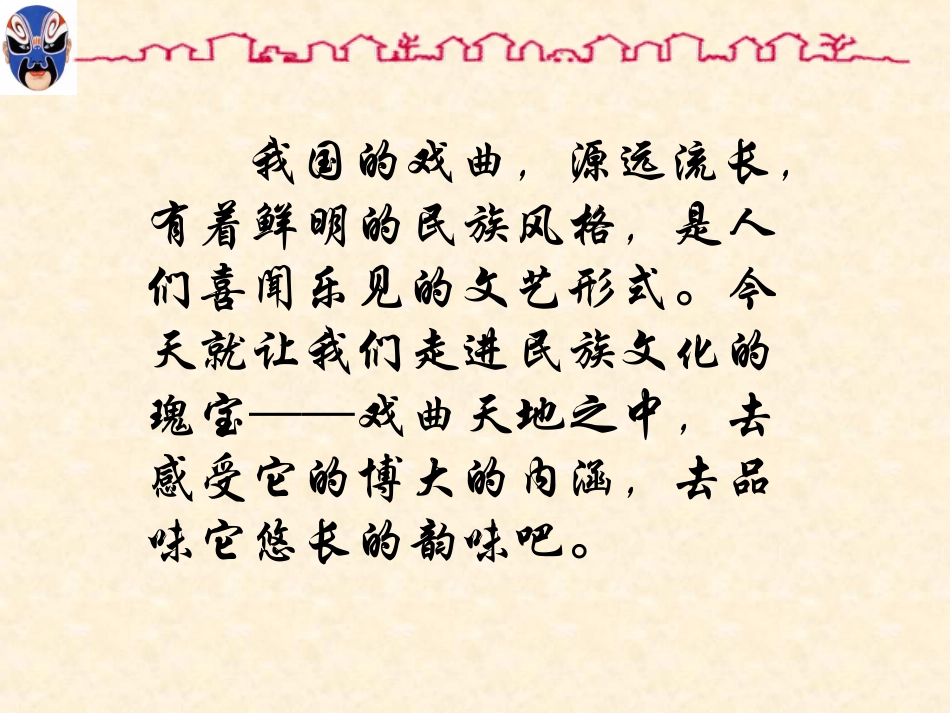 我国的戏曲，源远流长，
有着鲜明的民族风格，是人
们喜闻乐见的文艺形式。今
天就让我们走进民族文化的
瑰宝——戏曲天地之中，去
感受它的博大的内涵，去品
味它悠长的韵味吧。